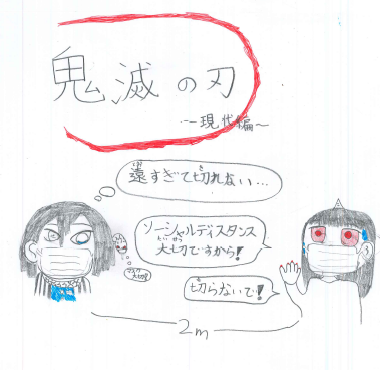 鬼滅の刃
~現代編~
遠すぎて切れない…
ソーシャルディスタンス
大切ですから!
切らないで!
2m